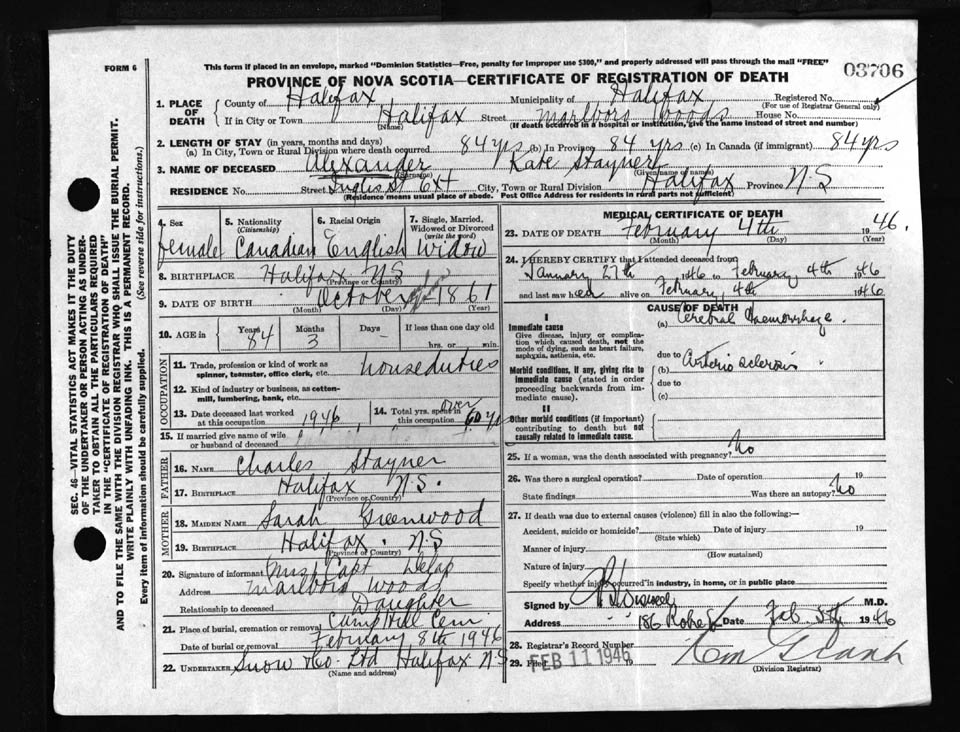 FORM 6
This form if placed in an envelope, marked "Dominion Statistics—Free, penalty for improper use $300," and properly addressed will pass through the mail "FREE"
PROVINCE OF NOVA SCOTIA—CERTIFICATE OF REGISTRATION OF DEATH
03706
1. PLACE OF DEATH
County of Halifax Municipality of Halifax Registered No.
(For use of Registrar General only)
If in City or Town Halifax Street Marlboro Woods House No.
(Name) (If death occurred in a hospital or institution, give the name instead of street and number)
2. LENGTH OF STAY (in years, months and days)
(a) In City, Town or Rural Division where death occurred 84 yrs (b) In Province 84 yrs (c) In Canada (if immigrant) 84 yrs
3. NAME OF DECEASED Alexander Kate Stayner
(Surname) (Given name or names)
RESIDENCE No. Street Inglis St Ext City, Town or Rural Division Halifax Province N.S
(Residence means usual place of abode. Post Office Address for residents in rural parts not sufficient)
4. Sex
female
5. Nationality
(Citizenship)
Canadian
6. Racial Origin
English
7. Single, Married, Widowed or Divorced
(write the word)
Widow
8. BIRTHPLACE Halifax N.S
(Province or Country)
9. DATE OF BIRTH October 1861
(Month) (Day) (Year)
10. AGE in
Years Months Days If less than one day old
84 3 – hrs. or min.
OCCUPATION
11. Trade, profession or kind of work as spinner, teamster, office clerk, etc. house duties
12. Kind of industry or business, as cotton-mill, lumbering, bank, etc.
13. Date deceased last worked at this occupation 1946
14. Total yrs. spent in this occupation over 60 yrs
15. If married give name of wife or husband of deceased
FATHER
16. NAME Charles Stayner
17. BIRTHPLACE Halifax N.S.
(Province or Country)
MOTHER
18. MAIDEN NAME Sarah Greenwood
19. BIRTHPLACE Halifax. N.S
(Province or Country)
20. Signature of informant Mrs Capt Delap
Address Marlboro Woods
Relationship to deceased Daughter
21. Place of burial, cremation or removal Camp Hill Cem
Date of burial or removal February 8th 1946
22. UNDERTAKER Snow & Co. Ltd Halifax N.S
(Name and address)
MEDICAL CERTIFICATE OF DEATH
23. DATE OF DEATH February 4th 1946.
(Month) (Day) (Year)
24. I HEREBY CERTIFY that I attended deceased from
January 27th 1946 to February 4th 1946
and last saw her alive on February 4th 1946
CAUSE OF DEATH
I
Immediate cause
Give disease, injury or complication which caused death, not the mode of dying, such as heart failure, asphyxia, asthenia, etc.
(a) Cerebral Haemorrhage.
due to
Morbid conditions, if any, giving rise to immediate cause (stated in order proceeding backwards from immediate cause).
(b) Arterio sclerosis
due to
(c)
II
Other morbid conditions (if important) contributing to death but not causally related to immediate cause.
25. If a woman, was the death associated with pregnancy? No
26. Was there a surgical operation? Date of operation 19
State findings Was there an autopsy? No
27. If death was due to external causes (violence) fill in also the following:—
Accident, suicide or homicide? Date of injury 19
(State which)
Manner of injury
(How sustained)
Nature of injury
Specify whether injury occurred in industry, in home, or in public place
Signed by M.D.
Address 186 Robie St Date Feb. 5th 1946
28. Registrar's Record Number
29. Filed FEB 11 1946
(Division Registrar)
SEC. 46—VITAL STATISTICS ACT MAKES IT THE DUTY
OF THE UNDERTAKER OR PERSON ACTING AS UNDER-
TAKER TO OBTAIN ALL THE PARTICULARS REQUIRED
IN THE "CERTIFICATE OF REGISTRATION OF DEATH"
AND TO FILE THE SAME WITH THE DIVISION REGISTRAR WHO SHALL ISSUE THE BURIAL PERMIT.
WRITE PLAINLY WITH UNFADING INK. THIS IS A PERMANENT RECORD.
Every item of information should be carefully supplied. (See reverse side for instructions.)